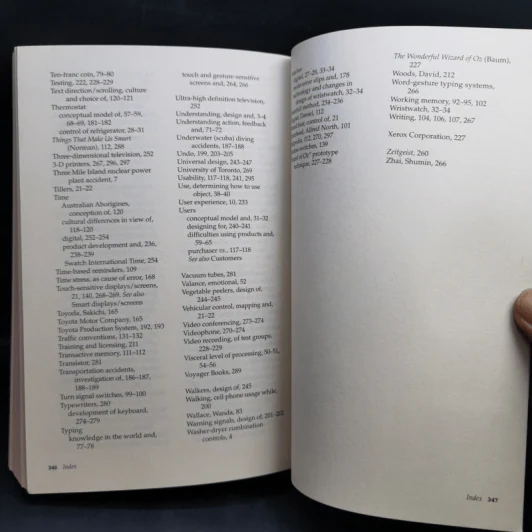 Ten-franc coin, 79–80
Testing, 222, 228–229
Text direction/scrolling, culture
and choice of, 120–121
Thermostat
conceptual model of, 57–59,
68–69, 181–182
control of refrigerator, 28–31
Things That Make Us Smart
(Norman), 112, 288
Three-dimensional television, 252
3-D printers, 267, 296, 297
Three Mile Island nuclear power
plant accident, 7
Tillers, 21–22
Time
Australian Aborigines,
conception of, 120
cultural differences in view of,
118–120
digital, 252–254
product development and, 236,
238–239
Swatch International Time, 254
Time-based reminders, 109
Time stress, as cause of error, 168
Touch-sensitive displays/screens,
21, 140, 268–269. See also
Smart displays/screens
Toyoda, Sakichi, 165
Toyota Motor Company, 165
Toyota Production System, 192, 193
Traffic conventions, 131–132
Training and licensing, 211
Transactive memory, 111–112
Transistor, 281
Transportation accidents,
investigation of, 186–187,
188–189
Turn signal switches, 99–100
Typewriters, 280
development of keyboard,
274–279
Typing
knowledge in the world and,
77–78
346 Index
touch and gesture-sensitive
screens and, 264, 266
Ultra-high definition television,
252
Understanding, design and, 3–4
Understanding action, feedback
and, 71–72
Underwater (scuba) diving
accidents, 187–188
Undo, 199, 203–205
Universal design, 243–247
University of Toronto, 269
Usability, 117–118, 241, 295
Use, determining how to use
object, 38–40
User experience, 10, 233
Users
conceptual model and, 31–32
designing for, 240–241
difficulties using products and,
59–65
purchaser vs., 117–118
See also Customers
Vacuum tubes, 281
Valance, emotional, 52
Vegetable peelers, design of,
244–245
Vehicular control, mapping and,
21–22
Video conferencing, 273–274
Videophone, 270–274
Video recording, of test groups,
228–229
Visceral level of processing, 50–51,
54–56
Voyager Books, 289
Walkers, design of, 245
Walking, cell phone usage while,
200
Wallace, Wanda, 83
Warning signals, design of, 201–202
Washer-dryer combination
controls, 4
27–28, 33–34
slips and, 178
and changes in
design of wristwatch, 32–34
method, 234–236
112
control of, 21
Alfred North, 101
112, 270, 297
139
of Oz" prototype
technique, 227–228
The Wonderful Wizard of Oz (Baum),
227
Woods, David, 212
Word-gesture typing systems,
266
Working memory, 92–95, 102
Wristwatch, 32–34
Writing, 104, 106, 107, 267
Xerox Corporation, 227
Zeitgeist, 260
Zhai, Shumin, 266
Index 347